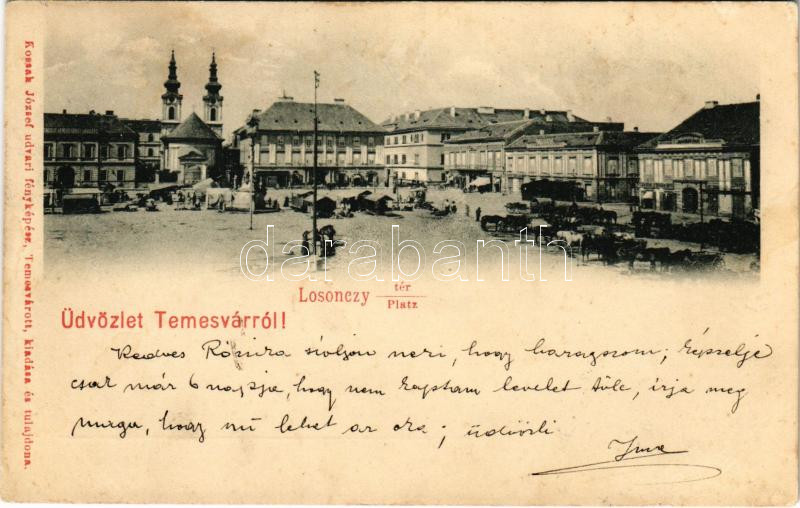 Kossak József udvari fényképész, Temesvárott, kiadása és tulajdona.
darabanth
Losonczy tér
Platz
Üdvözlet Temesvárról!
Kedves Rózsika szóljon neki, hogy haragszom; képzelje
csak már 6 napja, hogy nem kaptam levelet tőle, írja meg
maga, hogy mi lehet az oka; üdvözli
Imre